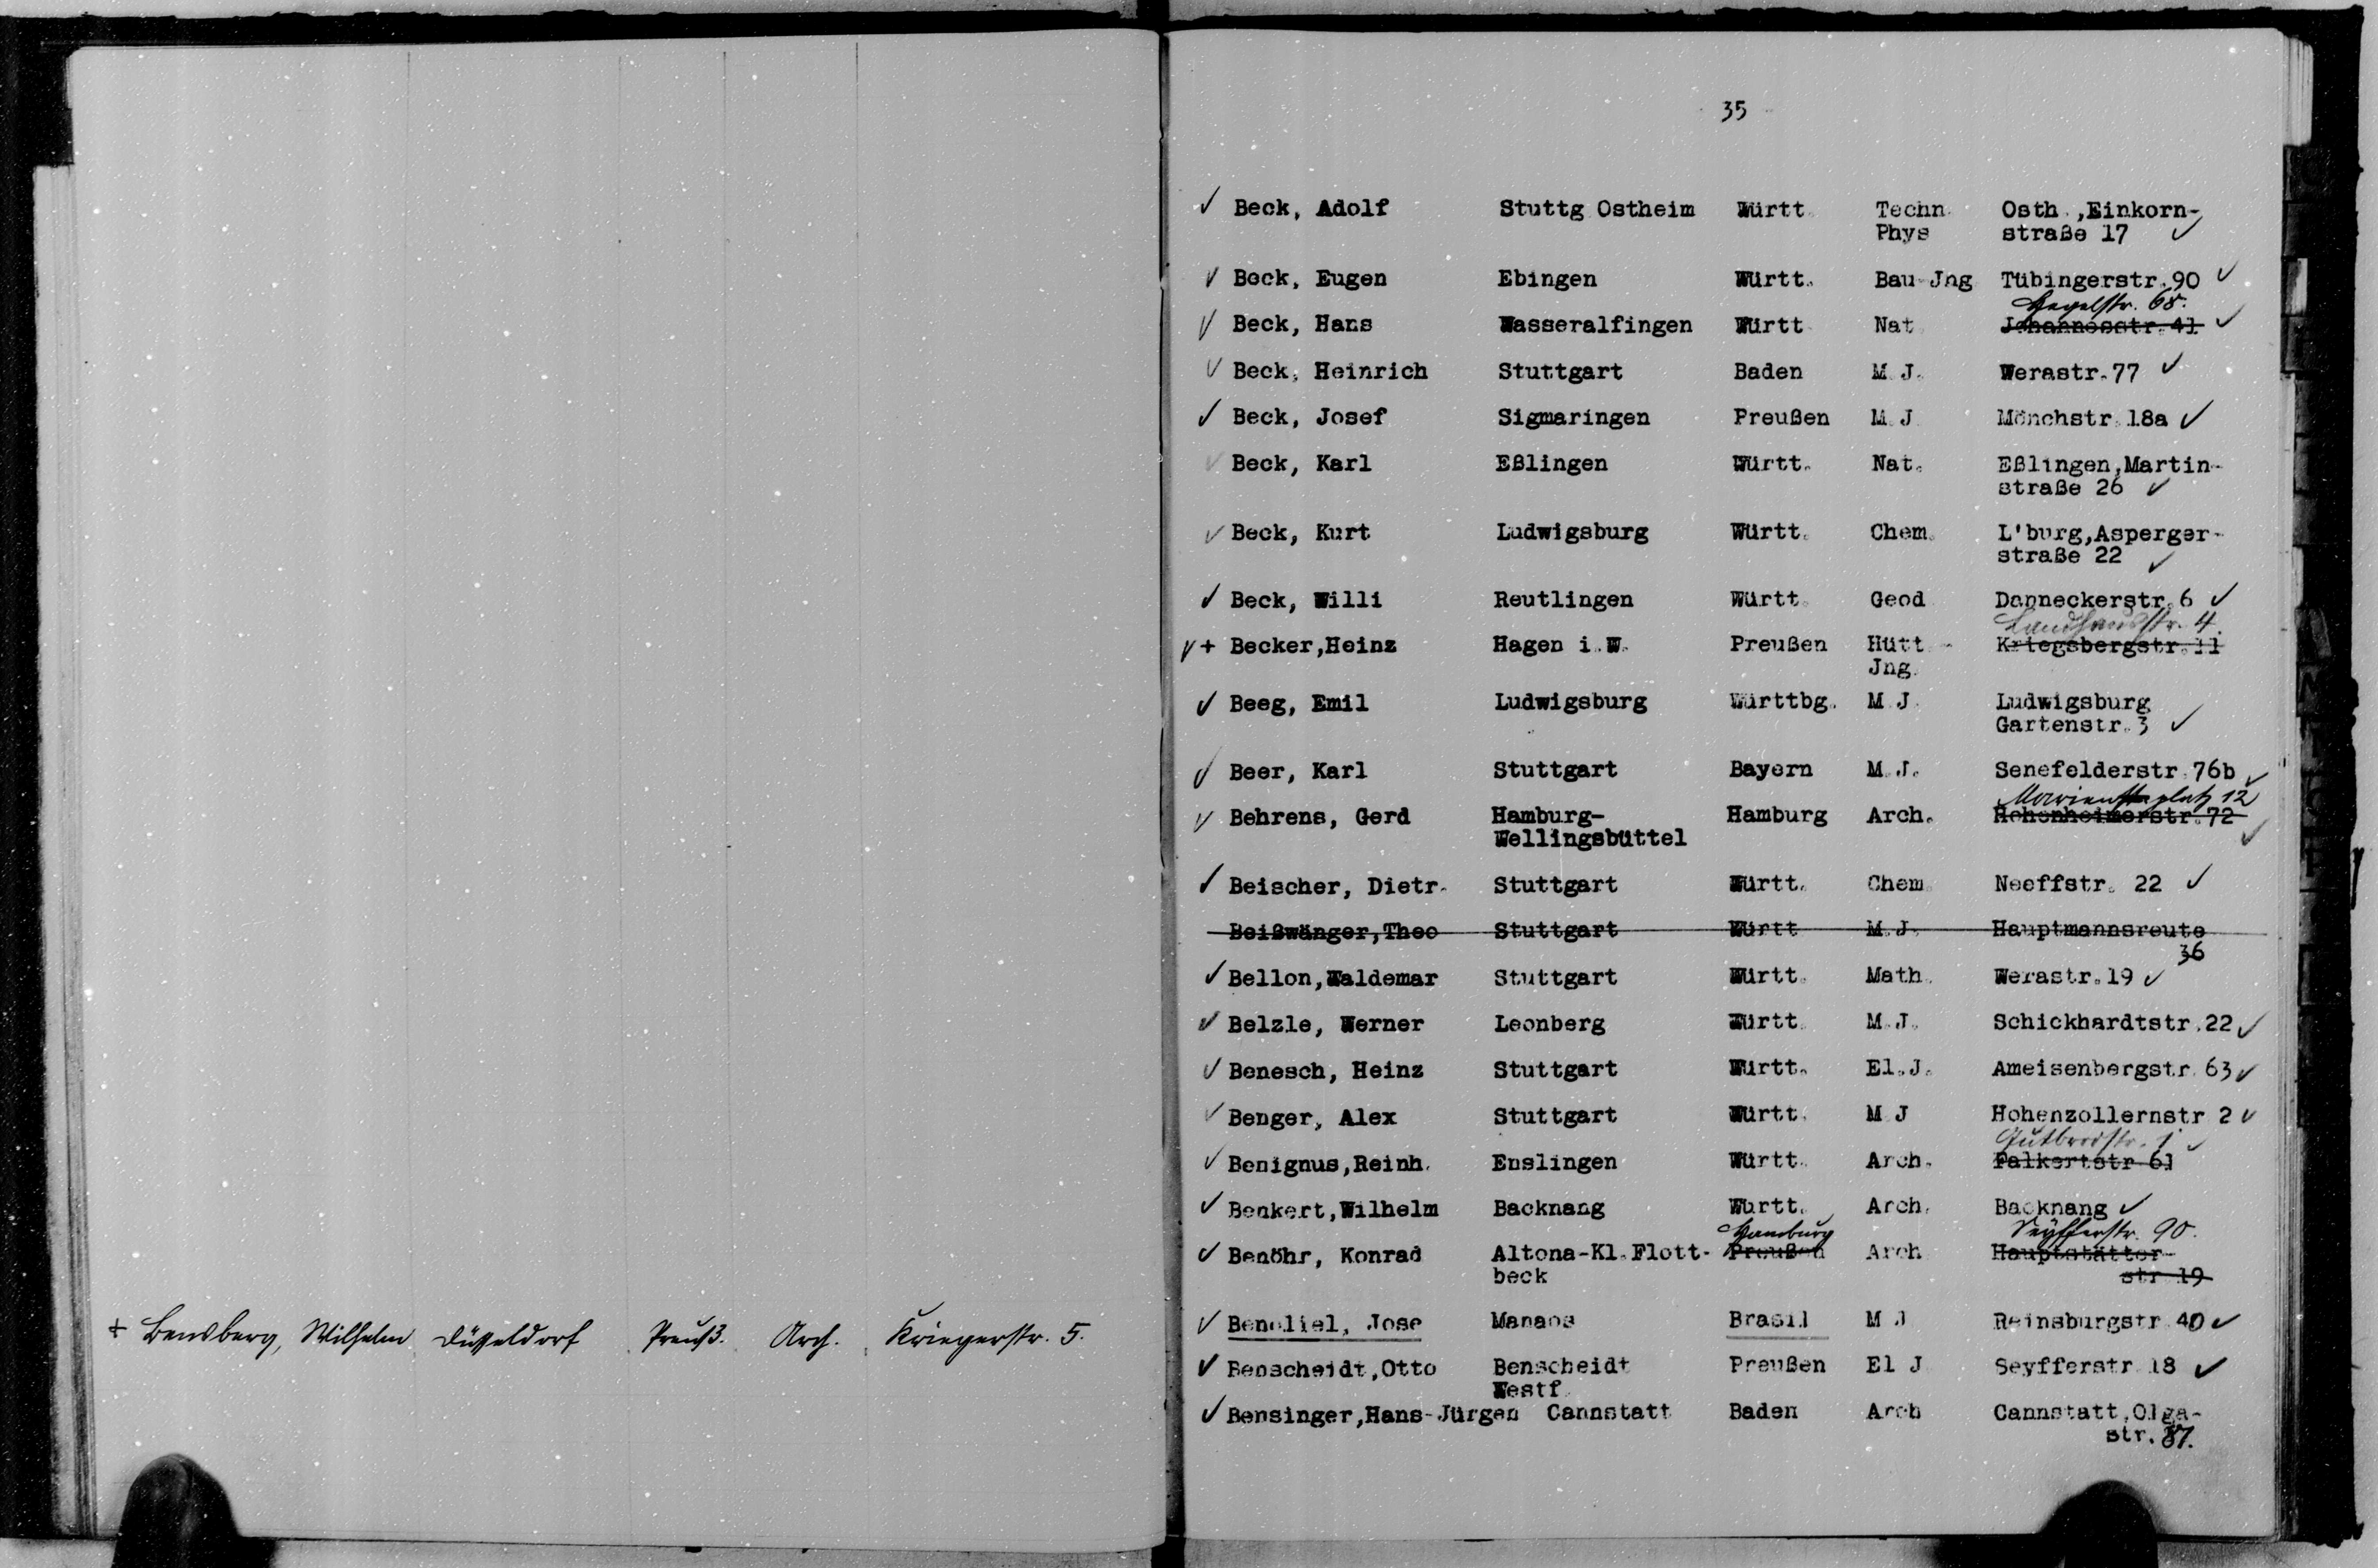 + Bensberg, Wilhelm Düsseldorf Preuß. Arch. Kriegerstr. 5.
35
✓ Beck, Adolf Stuttg Ostheim Württ. Techn. Osth.,Einkorn-
Phys straße 17 ✓
✓ Beck, Eugen Ebingen Württ. Bau-Jng Tübingerstr.90 ✓
Hegelstr. 68.
✓ Beck, Hans Wasseralfingen Württ Nat. Johannesstr.41 ✓
✓ Beck, Heinrich Stuttgart Baden M.J. Werastr.77 ✓
✓ Beck, Josef Sigmaringen Preußen M.J. Mönchstr.18a ✓
✓ Beck, Karl Eßlingen Württ. Nat. Eßlingen,Martin-
straße 26 ✓
✓ Beck, Kurt Ludwigsburg Württ. Chem. L'burg,Asperger-
straße 22 ✓
✓ Beck, Willi Reutlingen Württ. Geod Danneckerstr.6 ✓
Landhausstr. 4.
✓ + Becker,Heinz Hagen i.W. Preußen Hütt.- Kriegsbergstr.11
Jng.
✓ Beeg, Emil Ludwigsburg Württbg. M.J. Ludwigsburg
Gartenstr.3 ✓
✓ Beer, Karl Stuttgart Bayern M.J. Senefelderstr.76b ✓
Marienplatz 12
✓ Behrens, Gerd Hamburg- Hamburg Arch. Hohenheimerstr.72
Wellingsbüttel ✓
✓ Beischer, Dietr. Stuttgart Württ. Chem. Neeffstr. 22 ✓
Beißwänger,Theo Stuttgart Württ M.J. Hauptmannsreute
36
✓ Bellon,Waldemar Stuttgart Württ. Math. Werastr.19 ✓
✓ Belzle, Werner Leonberg Württ. M.J. Schickhardtstr.22 ✓
✓ Benesch, Heinz Stuttgart Württ. El.J. Ameisenbergstr.63 ✓
✓ Benger, Alex Stuttgart Württ. M J Hohenzollernstr 2 ✓
Gutbrodstr. 1 ✓
✓ Benignus,Reinh. Enslingen Württ. Arch. Falkertstr 61
✓ Benkert,Wilhelm Backnang Württ. Arch. Backnang ✓
Hamburg Seyfferstr. 90.
✓ Benöhr, Konrad Altona-Kl.Flott- Preußen Arch Hauptstätter-
beck str 19
✓ Benoliel, Jose Manaos Brasil M J Reinsburgstr 40 ✓
✓ Benscheidt,Otto Benscheidt Preußen El J Seyfferstr 18 ✓
Westf.
✓ Bensinger,Hans-Jürgen Cannstatt Baden Arch Cannstatt,Olga-
str. 87.